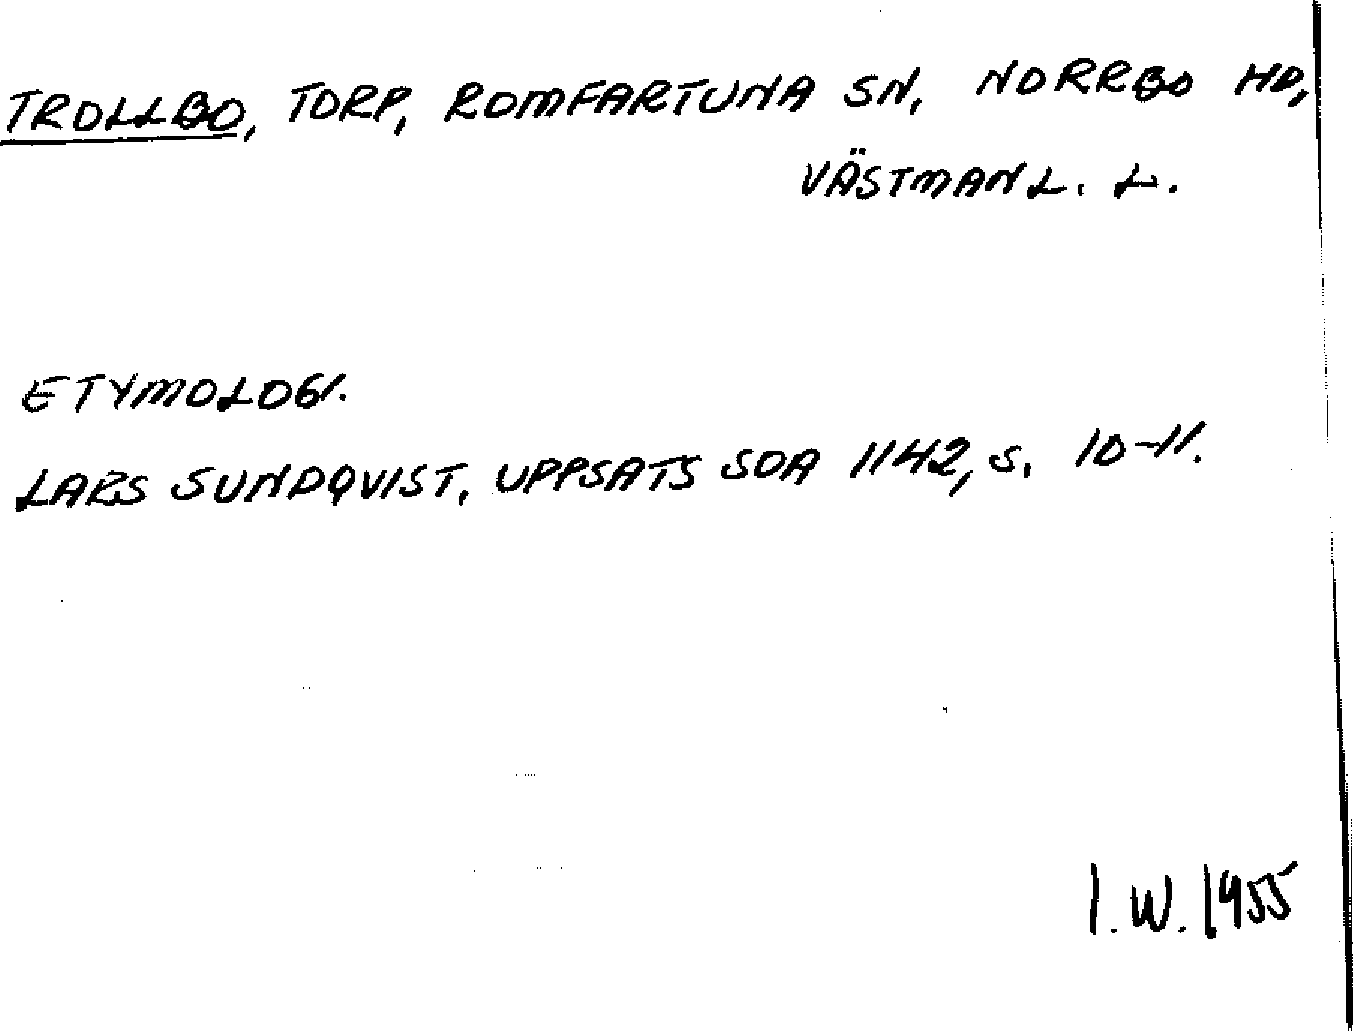 TROLLBO, TORP, ROMFARTUNA SN, NORRBO HD,
VÄSTMANL. L.
ETYMOLOGI.
LARS SUNDQVIST, UPPSATS SOA 1142, S. 10-11.
I.W. 1955